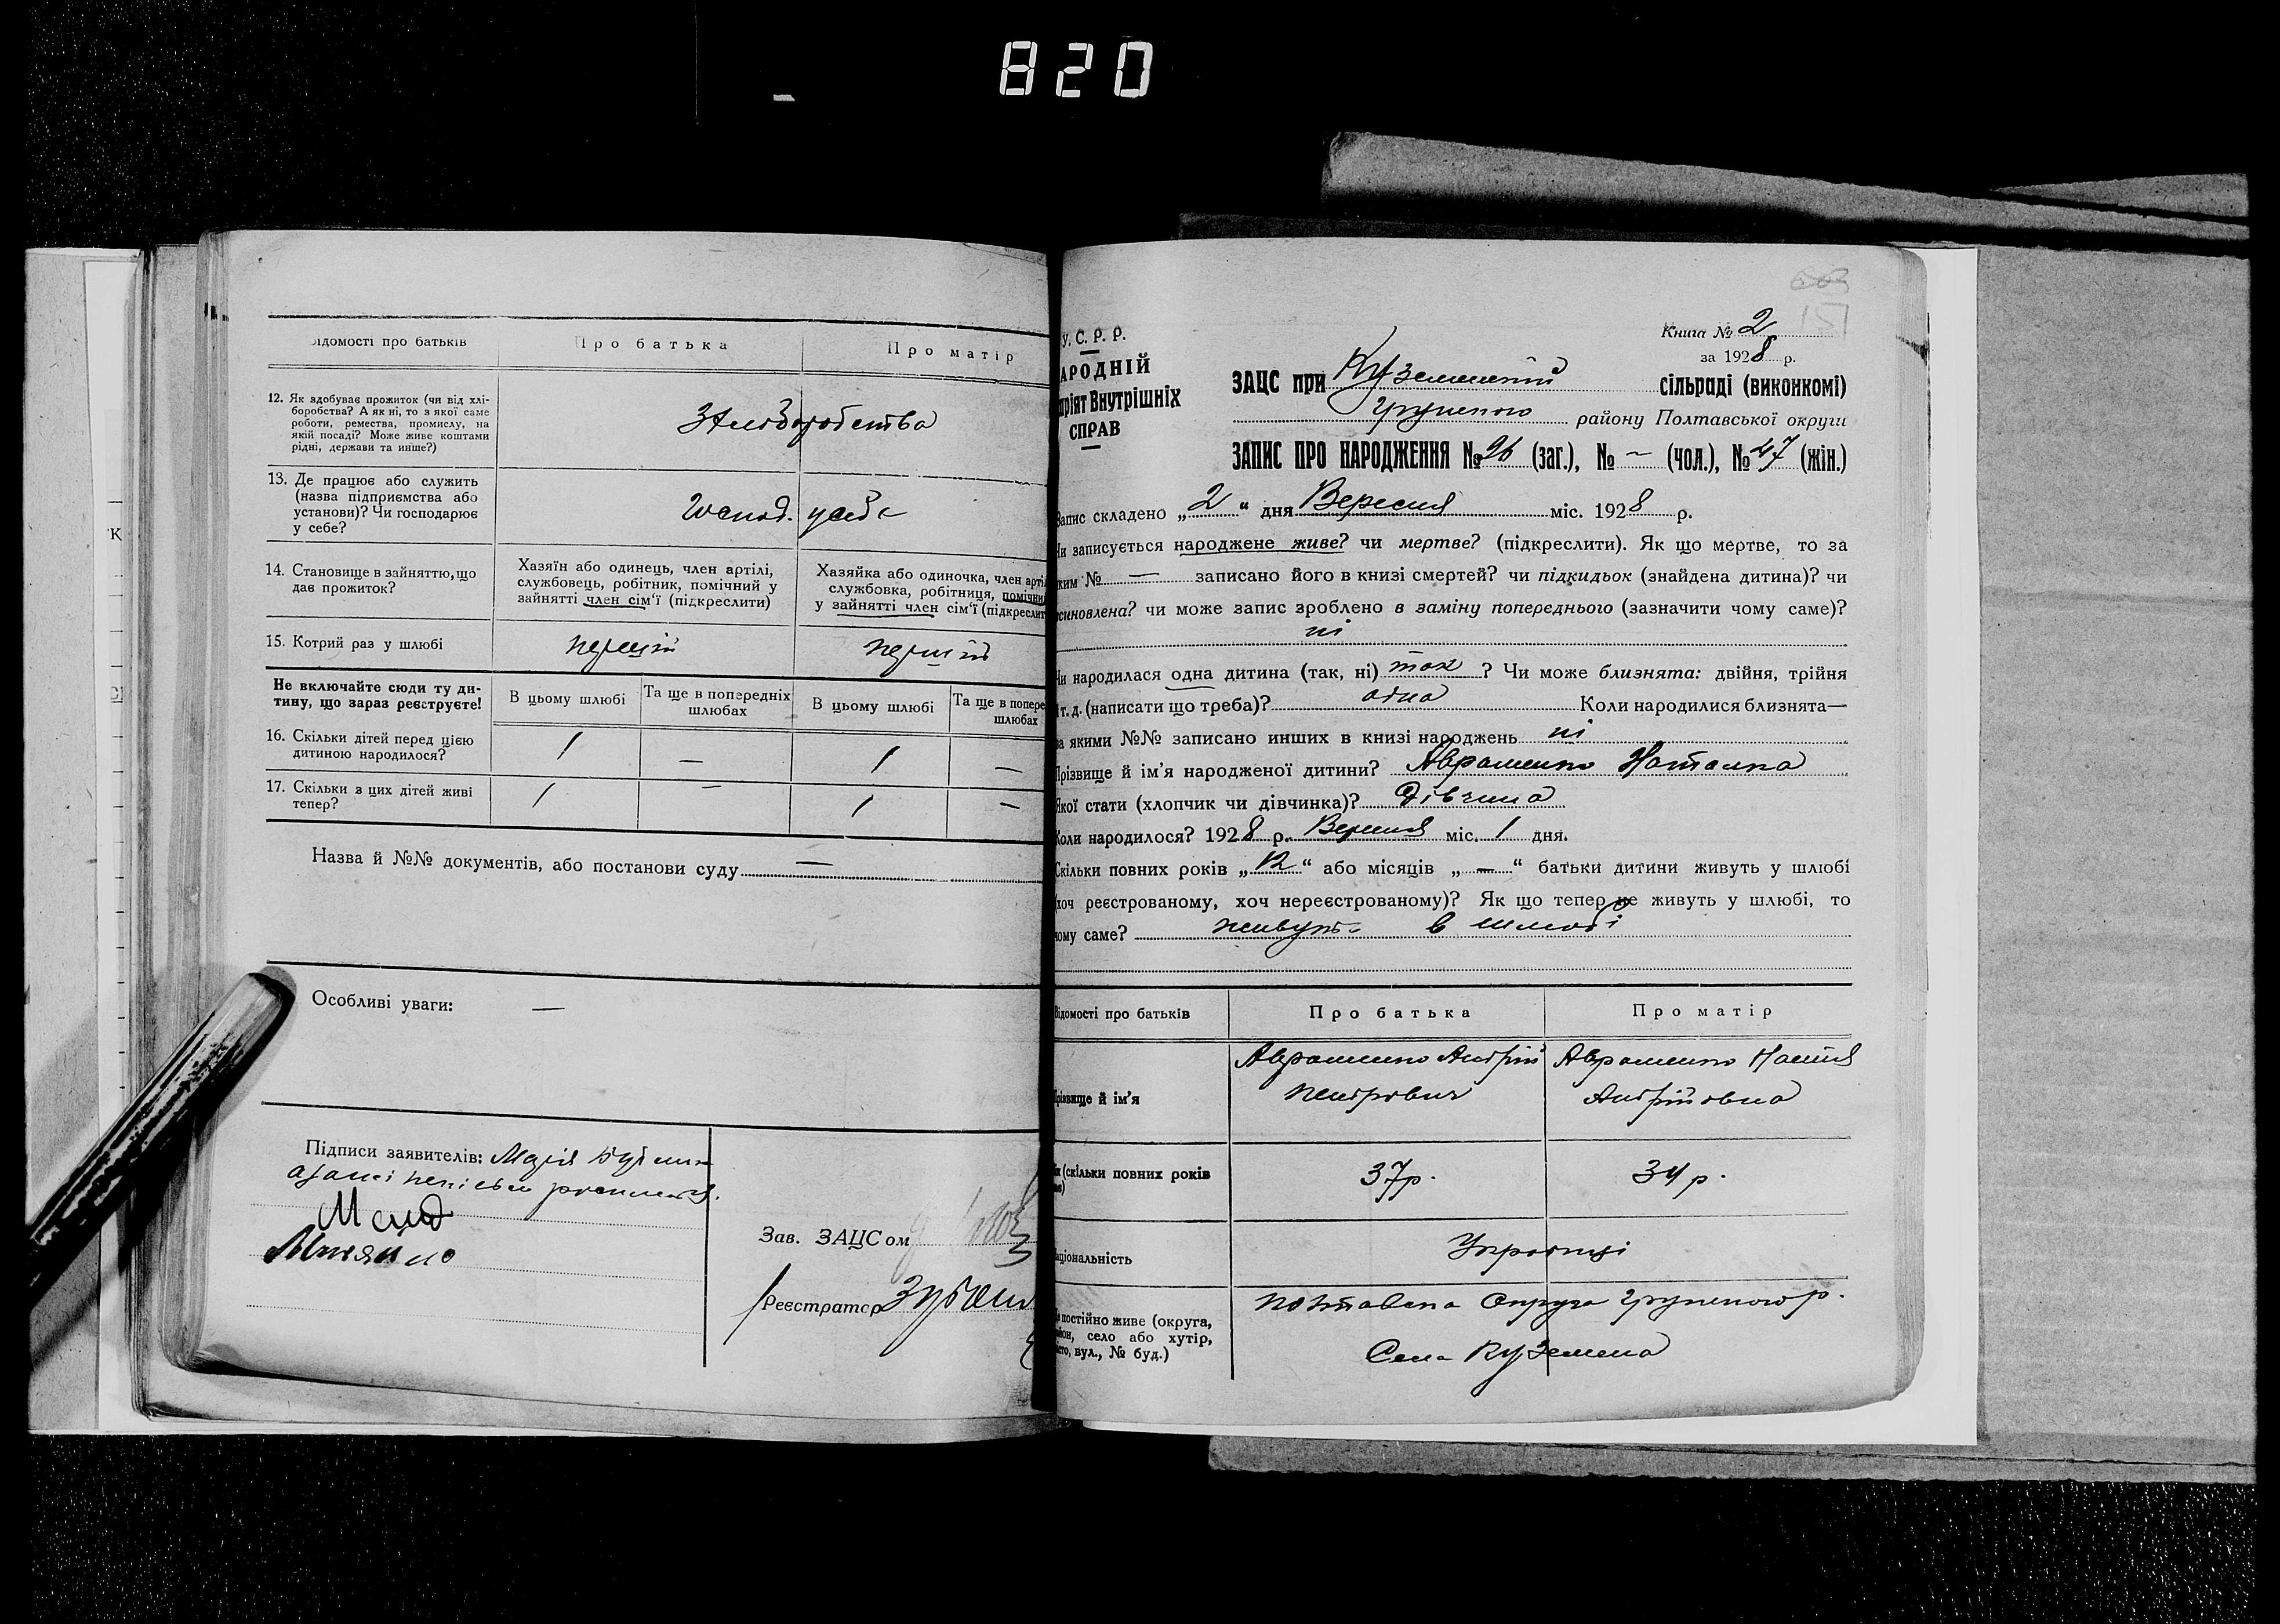 820
Відомості про батьків
Про батька
Про матір
12. Як здобуває прожиток (чи від хлі-
боробства? А як ні, то з якої саме
роботи, ремества, промислу, на
якій посаді? Може живе коштами
рідні, держави та инше?)
З хліборобства
13. Де працює або служить
(назва підприємства або
установи)? Чи господарює
у себе?
Господ. у себе
14. Становище в зайняттю, що
дає прожиток?
Хазяїн або одинець, член артілі,
службовець, робітник, помічний у
зайнятті член сім'ї (підкреслити)
Хазяйка або одиночка, член арті
службовка, робітниця, помічни
у зайнятті член сім'ї (підкреслит
15. Котрий раз у шлюбі
перший
перший
Не включайте сюди ту ди-
тину, що зараз реєструєте!
В цьому шлюбі
Та ще в попередніх
шлюбах
В цьому шлюбі
Та ще в попере
шлюбах
16. Скільки дітей перед цією
дитиною народилося?
1 — 1 —
17. Скільки з цих дітей живі
тепер?
1 — 1 —
Назва й №№ документів, або постанови суду —
Особливі уваги: —
Підписи заявителів: Марія
Зав. ЗАЦСом
Реєстратор
У. С. Р. Р.
АРОДНІЙ
ріят Внутрішніх
СПРАВ
Книга № 2
за 1928 р.
151
ЗАЦС при Куземській сільраді (виконкомі)
Груньского району Полтавської округи
ЗАПИС ПРО НАРОДЖЕННЯ № 96 (заг.), № – (чол.), № 47 (жін.)
Запис складено „2“ дня Вересня міс. 1928 р.
Чи записується народжене живе? чи мертве? (підкреслити). Як що мертве, то за
яким № — записано його в книзі смертей? чи підкидьок (знайдена дитина)? чи
синовлена? чи може запис зроблено в заміну попереднього (зазначити чому саме)?
ні
Чи народилася одна дитина (так, ні) так ? Чи може близнята: двійня, трійня
і т. д. (написати що треба)? одна Коли народилися близнята—
за якими №№ записано инших в книзі народжень ні
Прізвище й ім'я народженої дитини? Авраменко Наталка
Якої стати (хлопчик чи дівчинка)? Дівчина
Коли народилося? 1928 р. Вересня міс. 1 дня.
Скільки повних років „12“ або місяців „—“ батьки дитини живуть у шлюбі
хоч реєстрованому, хоч нереєстрованому)? Як що тепер не живуть у шлюбі, то
чому саме? живуть в шлюбі
Відомості про батьків
Про батька
Про матір
Прізвище й ім'я
Авраменко Андрій
Петрович
Авраменко Настя
Андріївна
(скільки повних років
37 р.
34 р.
аціональність
Українці
постійно живе (округа,
йон, село або хутір,
сто, вул., № буд.)
Полтавська Округа Груньского р.
Село Куземена